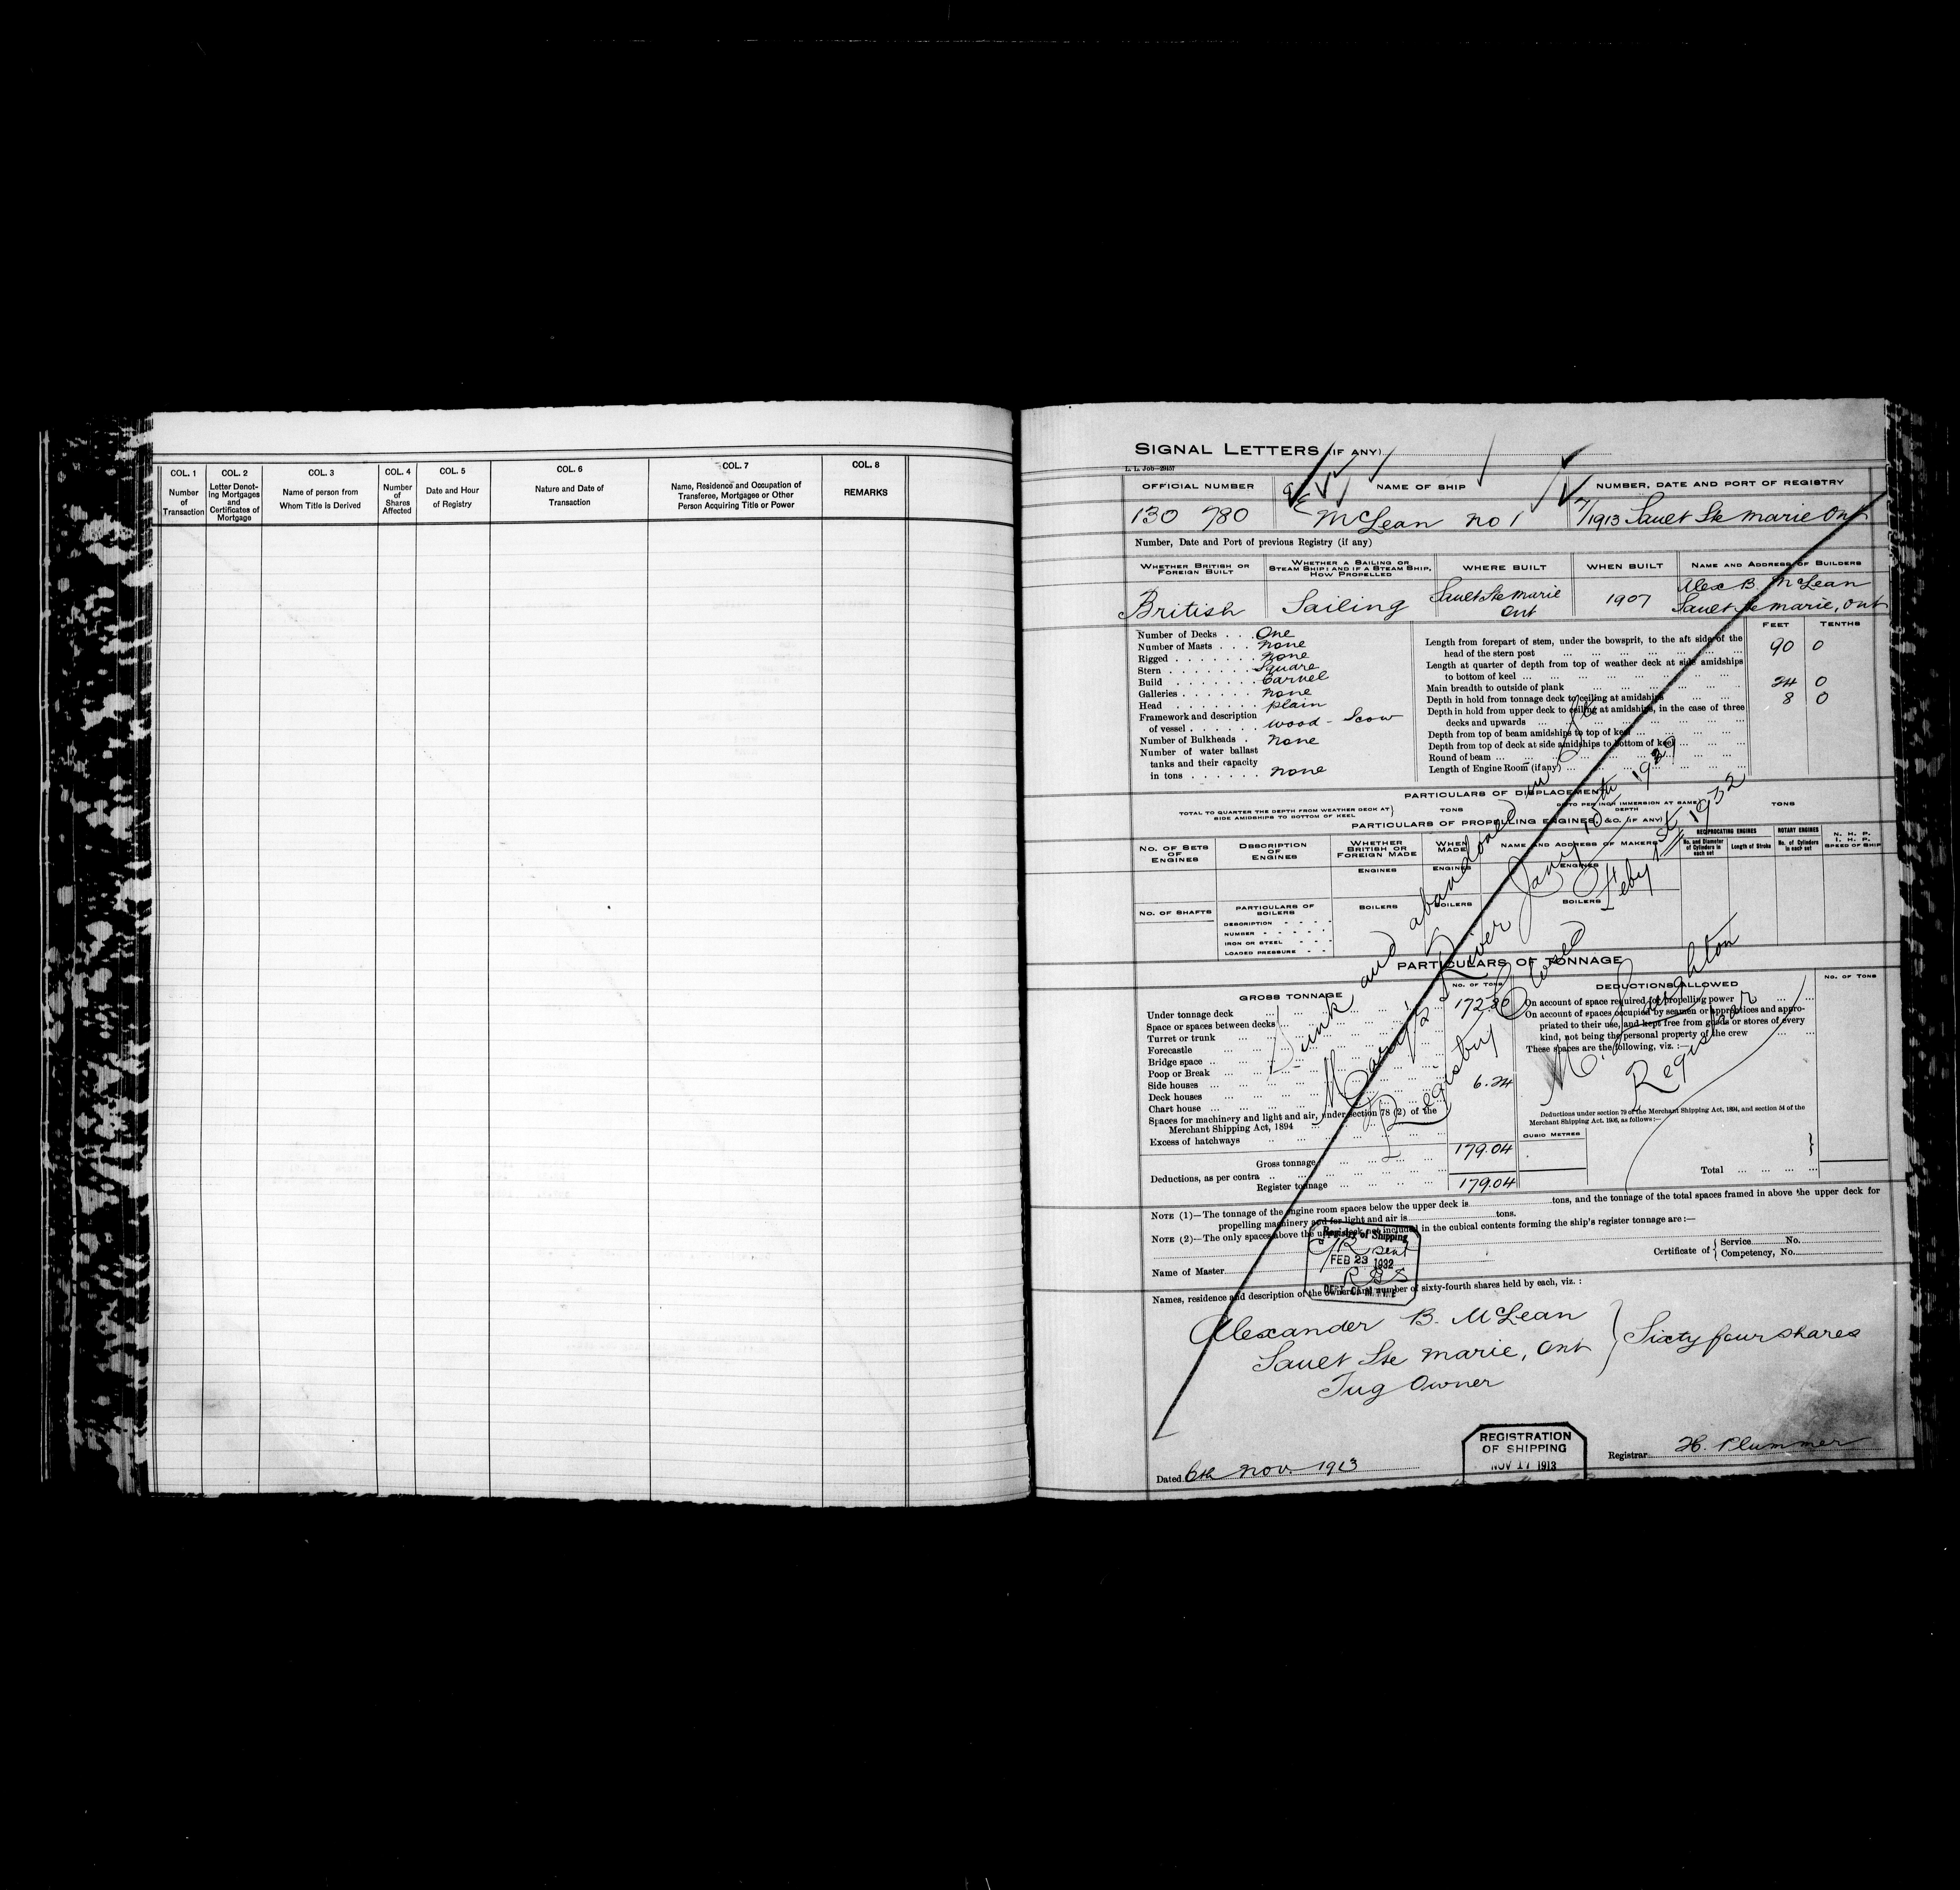 COL. 1
Number
of
Transaction
COL. 2
Letter Denot-
ing Mortgages
and
Certificates of
Mortgage
COL. 3
Name of person from
Whom Title is Derived
COL. 4
Number
of
Shares
Affected
COL. 5
Date and Hour
of Registry
COL. 6
Nature and Date of
Transaction
COL. 7
Name, Residence and Occupation of
Transferee, Mortgagee or Other
Person Acquiring Title or Power
COL. 8
REMARKS
SIGNAL LETTERS (IF ANY)
L. L. Job—29457
OFFICIAL NUMBER
NAME OF SHIP
NUMBER, DATE AND PORT OF REGISTRY
130 780
McLean No 1
7/1913 Sault Ste Marie Ont
Number, Date and Port of previous Registry (if any)
WHETHER BRITISH OR
FOREIGN BUILT
WHETHER A SAILING OR
STEAM SHIP: AND IF A STEAM SHIP,
HOW PROPELLED
WHERE BUILT
WHEN BUILT
NAME AND ADDRESS OF BUILDERS
British
Sailing
Sault Ste Marie
Ont
1907
Alex B McLean
Sault Ste Marie, Ont
Number of Decks One
Number of Masts None
Rigged None
Stern Square
Build Carvel
Galleries None
Head plain
Framework and description
of vessel wood - Scow
Number of Bulkheads None
Number of water ballast
tanks and their capacity
in tons None
FEET TENTHS
Length from forepart of stem, under the bowsprit, to the aft side of the
head of the stern post 90 0
Length at quarter of depth from top of weather deck at side amidships
to bottom of keel
Main breadth to outside of plank 24 0
Depth in hold from tonnage deck to ceiling at amidships 8 0
Depth in hold from upper deck to ceiling at amidships, in the case of three
decks and upwards
Depth from top of beam amidships to top of keel
Depth from top of deck at side amidships to bottom of keel
Round of beam
Length of Engine Room (if any)
PARTICULARS OF DISPLACEMENT
TOTAL TO QUARTER THE DEPTH FROM WEATHER DECK AT
SIDE AMIDSHIPS TO BOTTOM OF KEEL
TONS
DITTO PER INCH IMMERSION AT SAME
DEPTH
TONS
PARTICULARS OF PROPELLING ENGINES, &C. (IF ANY)
NO. OF SETS
OF
ENGINES
DESCRIPTION
OF
ENGINES
WHETHER
BRITISH OR
FOREIGN MADE
WHEN
MADE
NAME AND ADDRESS OF MAKERS
RECIPROCATING ENGINES
No. and Diameter
of Cylinders in
each set
Length of Stroke
ROTARY ENGINES
No. of Cylinders
in each set
N. H. P.
I. H. P.
SPEED OF SHIP
ENGINES
ENGINES
ENGINES
NO. OF SHAFTS
PARTICULARS OF
BOILERS
BOILERS
BOILERS
BOILERS
DESCRIPTION
NUMBER
IRON OR STEEL
LOADED PRESSURE
Sunk and abandoned in
River Jany 10th
Registry Closed Feby 1st 1932
Registrar
PARTICULARS OF TONNAGE
GROSS TONNAGE
NO. OF TONS
Under tonnage deck 172.80
Space or spaces between decks
Turret or trunk
Forecastle
Bridge space
Poop or Break
Side houses 6.24
Deck houses
Chart house
Spaces for machinery and light and air, under section 78 (2) of the
Merchant Shipping Act, 1894
Excess of hatchways
Gross tonnage 179.04
Deductions, as per contra
Register tonnage 179.04
DEDUCTIONS ALLOWED
NO. OF TONS
On account of space required for propelling power
On account of spaces occupied by seamen or apprentices and appro-
priated to their use, and kept free from goods or stores of every
kind, not being the personal property of the crew
These spaces are the following, viz. :—
Deductions under section 79 of the Merchant Shipping Act, 1894, and section 54 of the
Merchant Shipping Act, 1906, as follows:—
CUBIC METRES
Total
NOTE (1)—The tonnage of the engine room spaces below the upper deck is tons, and the tonnage of the total spaces framed in above the upper deck for
propelling machinery and for light and air is tons.
NOTE (2)—The only spaces above the upper deck not included in the cubical contents forming the ship's register tonnage are:—
Registry of Shipping
C/R sent
FEB 23 1932
Name of Master
Certificate of
Service No.
Competency, No.
Names, residence and description of the owners and number of sixty-fourth shares held by each, viz. :
Alexander B. McLean
Sault Ste Marie, Ont
Tug Owner
Sixty four shares
Dated 6th Nov. 1913
REGISTRATION
OF SHIPPING
NOV 17 1913
Registrar H. Plummer